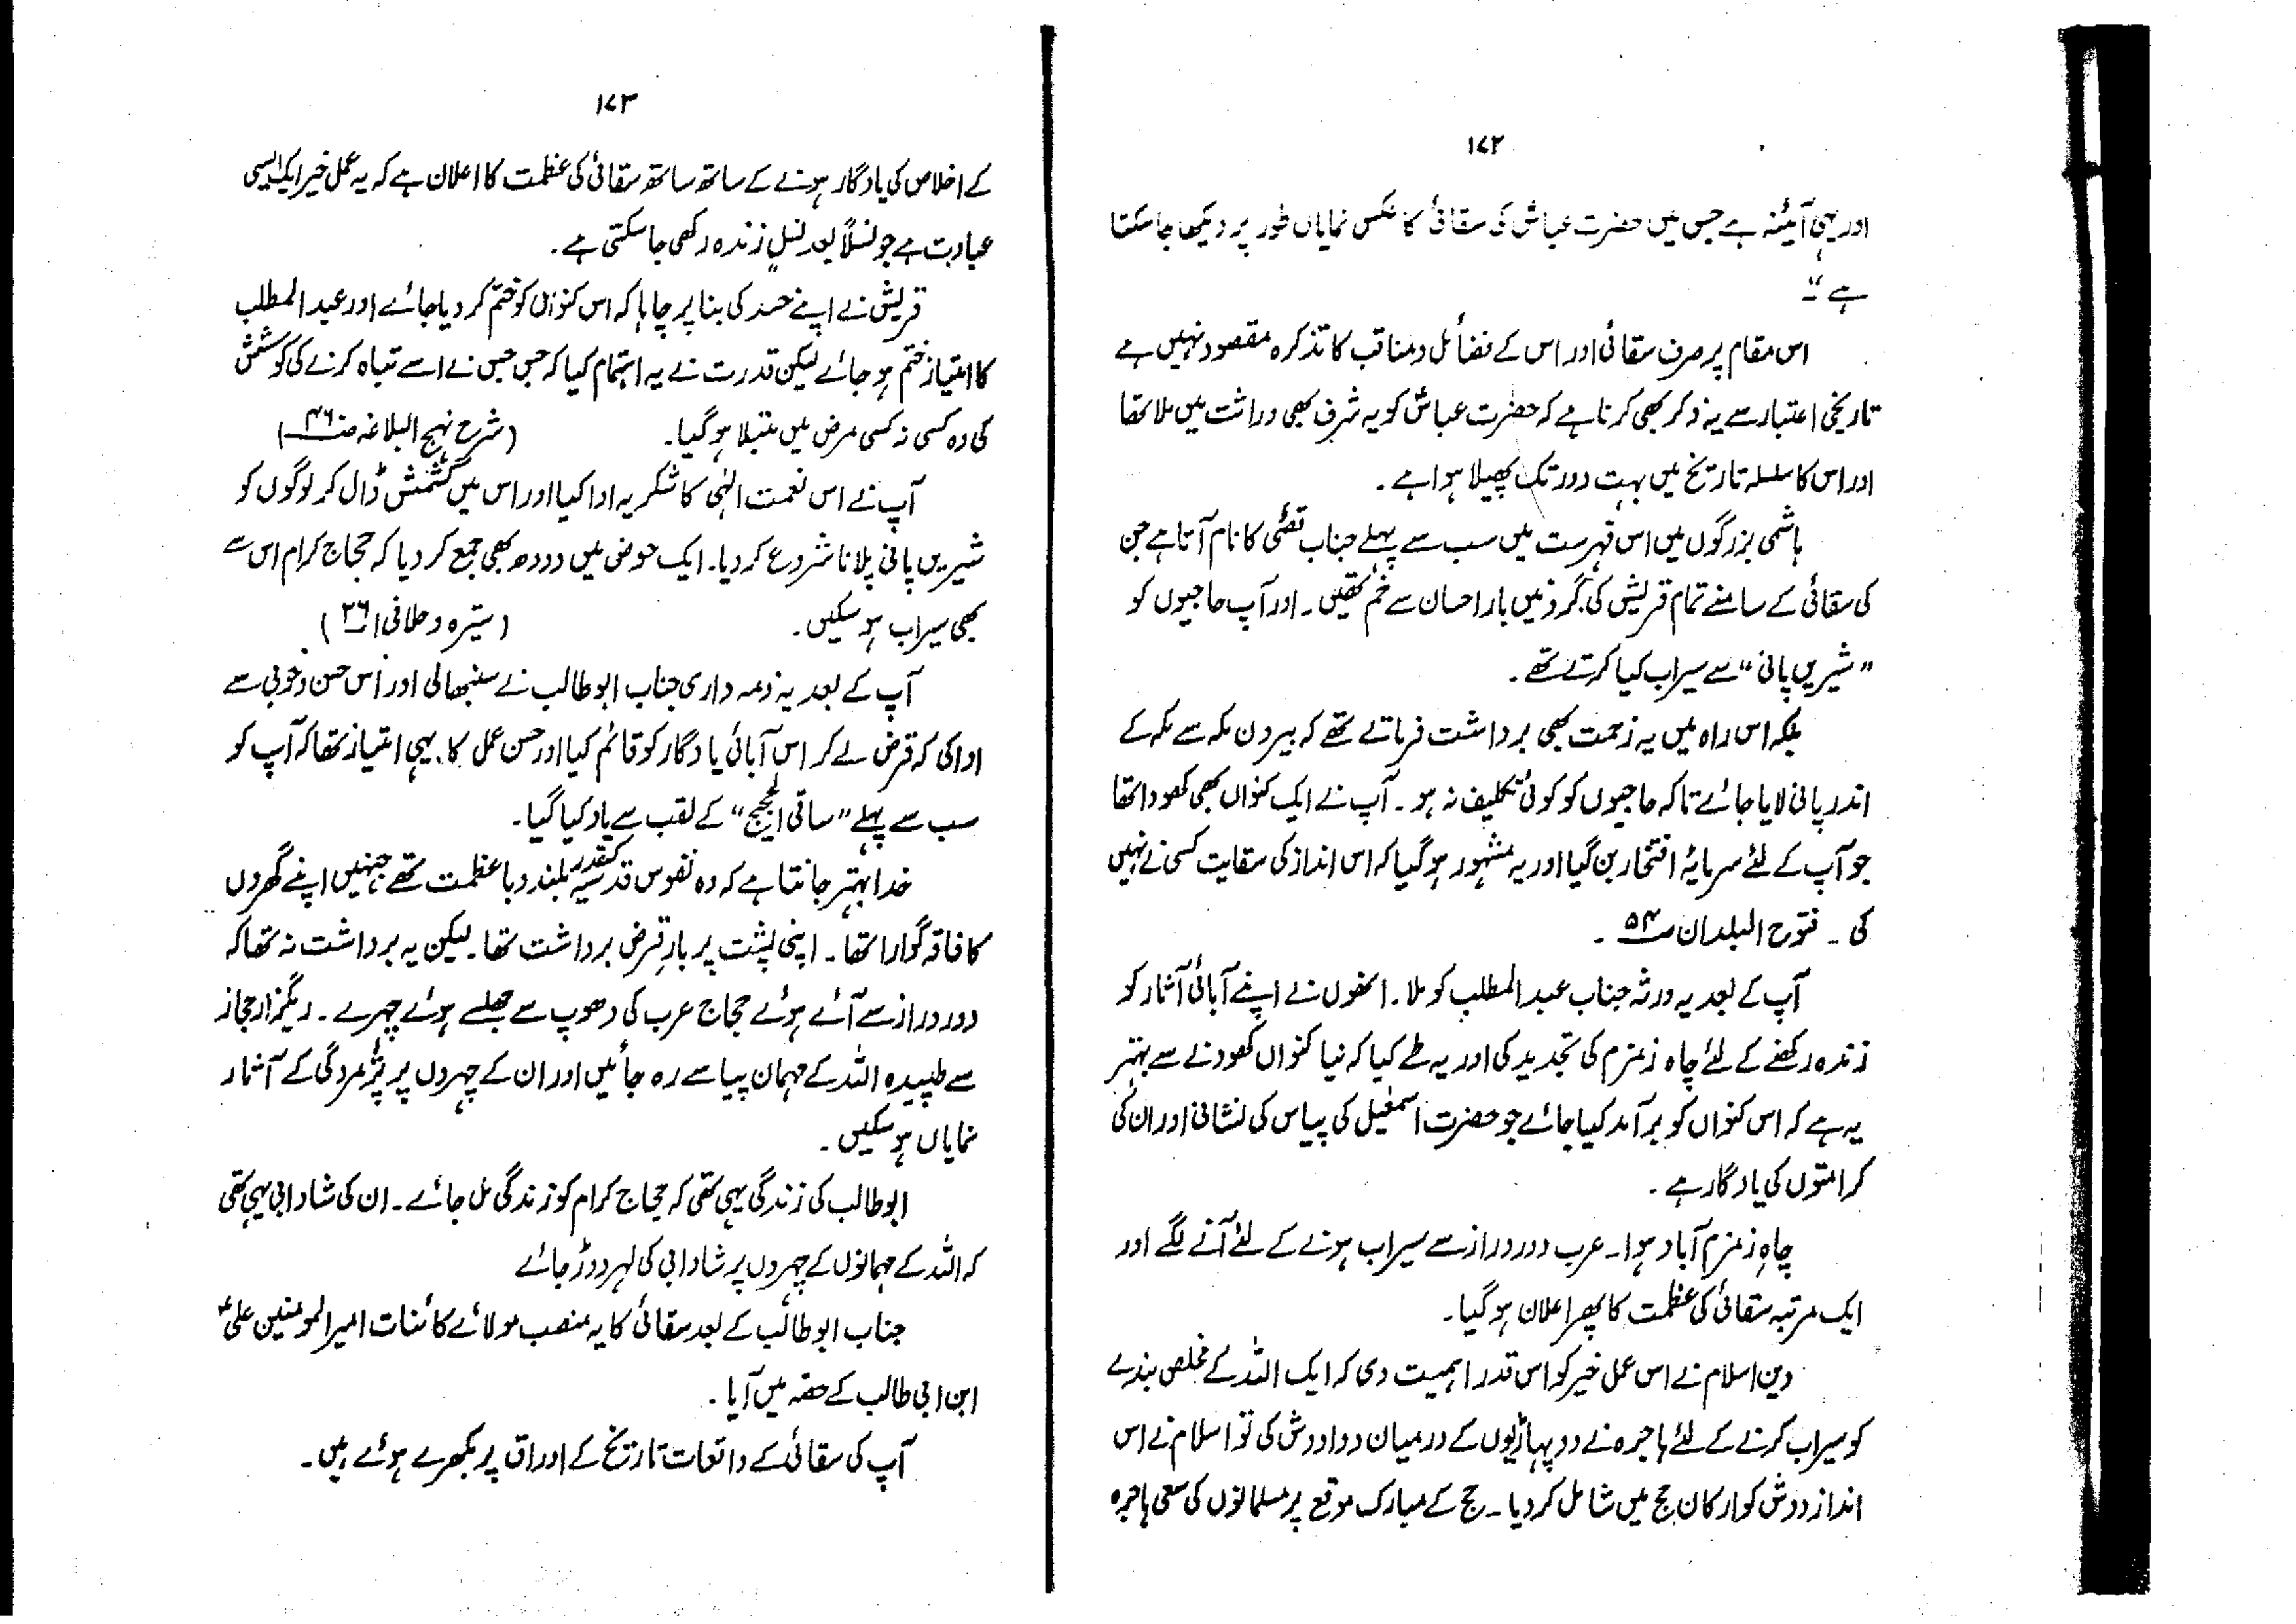 ۱۷۲
اور یہی آئینہ ہے جس میں حضرت عباسؑ کی سقائی کا عکس نمایاں طور پر دیکھا جا سکتا
ہے"۔
اس مقام پر صرف سقائی اور اس کے فضائل و مناقب کا تذکرہ مقصود نہیں ہے
تاریخی اعتبار سے یہ ذکر بھی کرنا ہے کہ حضرت عباسؑ کو یہ شرف بھی وراثت میں ملا تھا
اور اس کا سلسلہ تاریخ میں بہت دور تک پھیلا ہوا ہے۔
ہاشمی بزرگوں میں اس فہرست میں سب سے پہلے جناب قصّی کا نام آتا ہے جن
کی سقائی کے سامنے تمام قریش کی گردنیں بار احسان سے خم تھیں۔ اور آپ حاجیوں کو
"شیریں پانی" سے سیراب کیا کرتے تھے۔
بلکہ اس راہ میں یہ زحمت بھی برداشت فرماتے تھے کہ بیرون مکہ سے مکہ کے
اندر پانی لایا جائے تاکہ حاجیوں کو کوئی تکلیف نہ ہو۔ آپ نے ایک کنواں بھی کھودا تھا
جو آپ کے لئے سرمایۂ افتخار بن گیا اور یہ مشہور ہو گیا کہ اس انداز کی سقایت کسی نے نہیں
کی۔ فتوح البلدان ص۵۴۔
آپ کے بعد یہ ورثہ جناب عبد المطلب کو ملا۔ انھوں نے اپنے آبائی آثار کو
زندہ رکھنے کے لئے چاہ زمزم کی تجدید کی اور یہ طے کیا کہ نیا کنواں کھودنے سے بہتر
یہ ہے کہ اس کنواں کو برآمد کیا جائے جو حضرت اسمٰعیل کی پیاس کی نشانی اور ان کی
کرامتوں کی یادگار ہے۔
چاہِ زمزم آباد ہوا۔ عرب دور دراز سے سیراب ہونے کے لئے آنے لگے اور
ایک مرتبہ سقائی کی عظمت کا پھر اعلان ہو گیا۔
دین اسلام نے اس عمل خیر کو اس قدر اہمیت دی کہ ایک اللہ کے مخلص بندے
کو سیراب کرنے کے لئے ہاجرہ نے دو پہاڑیوں کے درمیان دوادوش کی تو اسلام نے اس
انداز روش کو ارکان حج میں شامل کر دیا۔ حج کے مبارک موقع پر مسلمانوں کی سعی ہاجرہ
۱۷۳
کے اخلاص کی یادگار ہونے کے ساتھ ساتھ سقائی کی عظمت کا اعلان ہے کہ یہ عمل خیر ایک ایسی
عبادت ہے جو نسلاً بعد نسلٍ زندہ رکھی جا سکتی ہے۔
قریش نے اپنے حسد کی بنا پر چاہا کہ اس کنواں کو ختم کر دیا جائے اور عبد المطلب
کا امتیاز ختم ہو جائے لیکن قدرت نے یہ اہتمام کیا کہ جس جس نے اسے تباہ کرنے کی کوشش
کی وہ کسی نہ کسی مرض میں مبتلا ہو گیا۔ (شرح نہج البلاغہ ص۴۶)
آپ نے اس نعمت الٰہی کا شکریہ ادا کیا اور اس میں کشمش ڈال کر لوگوں کو
شیریں پانی پلانا شروع کر دیا۔ ایک حوض میں دودھ بھی جمع کر دیا کہ حجاج کرام اس سے
بھی سیراب ہو سکیں۔ (سیرہ دحلانی ۱ ۲۶)
آپ کے بعد یہ ذمہ داری جناب ابو طالب نے سنبھالی اور اس حسن و خوبی سے
ادا کی کہ قرض لے کر اس آبائی یادگار کو قائم کیا اور حسن عمل کا یہی امتیاز تھا کہ آپ کو
سب سے پہلے "ساقی الحجیج" کے لقب سے یاد کیا گیا۔
خدا بہتر جانتا ہے کہ وہ نفوس قدسیہ کسقدر بلند و با عظمت تھے جنہیں اپنے گھروں
کا فاقہ گوارا تھا۔ اپنی پشت پر بارِ قرض برداشت تھا۔ لیکن یہ برداشت نہ تھا کہ
دور دراز سے آئے ہوئے حجاج عرب کی دھوپ سے جھلسے ہوئے چہرے۔ ریگزار حجاز
سے طپیدہ اللہ کے مہمان پیاسے رہ جائیں اور ان کے چہروں پر پژمردگی کے آثار
نمایاں ہو سکیں۔
ابو طالب کی زندگی یہی تھی کہ حجاج کرام کو زندگی مل جائے۔ ان کی شادابی یہی تھی
کہ اللہ کے مہمانوں کے چہروں پر شادابی کی لہر دوڑ جائے
جناب ابو طالب کے بعد سقائی کا یہ منصب مولائے کائنات امیر المومنین علیؑ
ابن ابی طالب کے حصّہ میں آیا۔
آپ کی سقائی کے واقعات تاریخ کے اوراق پر بکھرے ہوئے ہیں۔